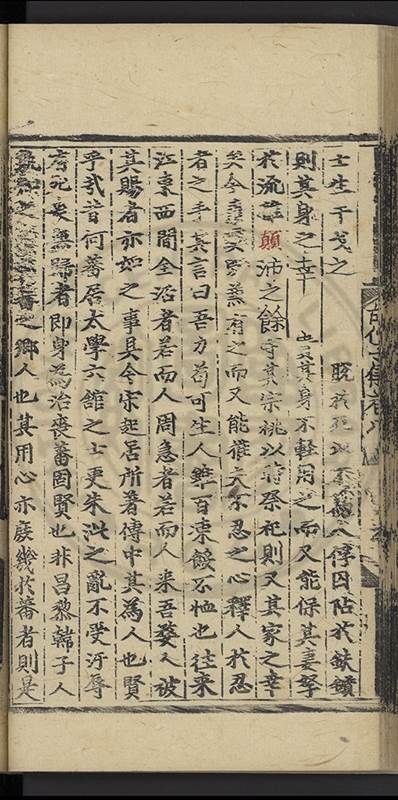 士生干戈之脫於死地不為人俘囚阽於鈇鑕
則其身之幸其身不輕用之而又能保其妻孥
於流離顛沛之餘守其宗祧以時祭祀則又其家之幸
矣今兼有之而又能推夫不忍之心釋人於忍
者之手其言曰吾力苟可生人雖百凍餒不恤也往來
江東西間全活者若而人周急者若而人來吾婺人被
其賜者亦如之事具今宋起居所著傳中其為人也賢
乎哉昔何蕃居太學六館之士更朱泚之亂不受汙辱
有死喪無歸者即身為治喪蕃固賢也非昌黎韓子人
孰知之之鄉人也其用心亦庶幾於蕃者則是